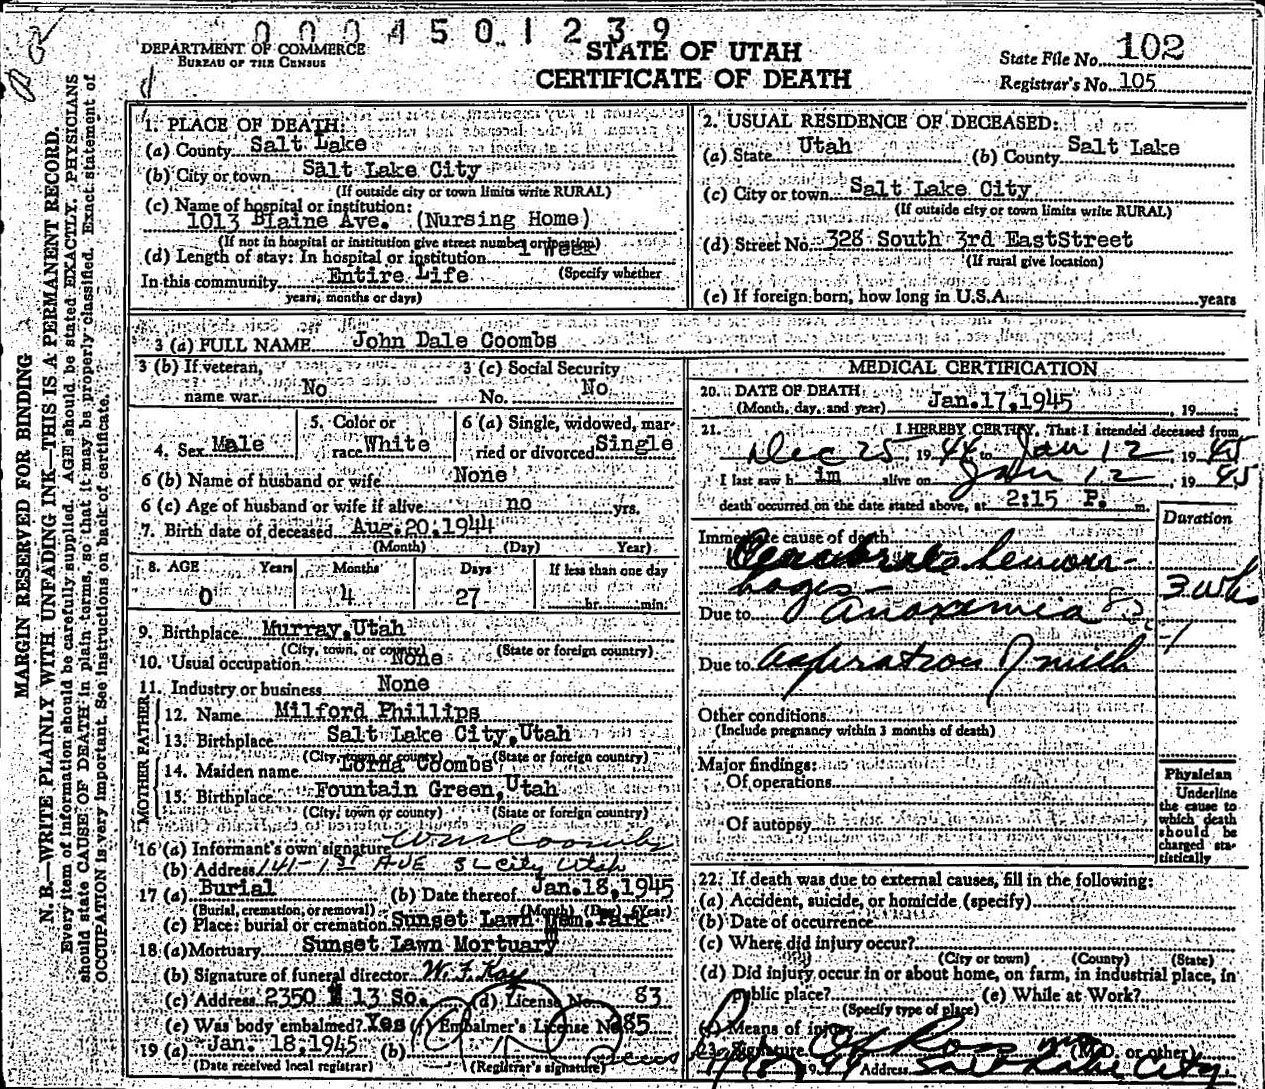 0004501239
DEPARTMENT OF COMMERCE
BUREAU OF THE CENSUS
STATE OF UTAH
CERTIFICATE OF DEATH
State File No. 102
Registrar's No. 105
MARGIN RESERVED FOR BINDING
N. B.—WRITE PLAINLY WITH UNFADING INK—THIS IS A PERMANENT RECORD.
Every item of information should be carefully supplied. AGE should be stated EXACTLY. PHYSICIANS
should state CAUSE OF DEATH in plain terms, so that it may be properly classified. Exact statement of
OCCUPATION is very important. See instructions on back of certificate.
1. PLACE OF DEATH:
(a) County Salt Lake
(b) City or town Salt Lake City
(If outside city or town limits write RURAL)
(c) Name of hospital or institution:
1013 Blaine Ave. (Nursing Home)
(If not in hospital or institution give street number or location)
(d) Length of stay: In hospital or institution 1 week
In this community Entire Life (Specify whether
years, months or days)
2. USUAL RESIDENCE OF DECEASED:
(a) State Utah (b) County Salt Lake
(c) City or town Salt Lake City
(If outside city or town limits write RURAL)
(d) Street No. 328 South 3rd EastStreet
(If rural give location)
(e) If foreign born, how long in U.S.A. years
3 (a) FULL NAME John Dale Coombs
3 (b) If veteran, name war No
3 (c) Social Security No. No
4. Sex Male
5. Color or race White
6 (a) Single, widowed, married or divorced Single
6 (b) Name of husband or wife None
6 (c) Age of husband or wife if alive no yrs.
7. Birth date of deceased Aug.20,1944
(Month) (Day) Year)
8. AGE Years Months Days If less than one day
0 4 27 hr. min.
9. Birthplace Murray,Utah
(City, town, or county) (State or foreign country)
10. Usual occupation None
11. Industry or business None
FATHER
12. Name Milford Phillips
13. Birthplace Salt Lake City,Utah
(City, town or county) (State or foreign country)
MOTHER
14. Maiden name Lorna Coombs
15. Birthplace Fountain Green,Utah
(City, town or county) (State or foreign country)
16 (a) Informant's own signature Wm Coombs
(b) Address 141- 1st AVE S L City Utah
17 (a) Burial (b) Date thereof Jan.18,1945
(Burial, cremation, or removal) (Month) (Day) (Year)
(c) Place: burial or cremation Sunset Lawn Mem. Park
18 (a) Mortuary Sunset Lawn Mortuary
(b) Signature of funeral director W. F. Kay
(c) Address 2350 13 So. (d) License No. 83
(e) Was body embalmed? Yes (f) Embalmer's License No 85
19 (a) Jan. 18,1945 (b)
(Date received local registrar) (Registrar's signature)
MEDICAL CERTIFICATION
20. DATE OF DEATH Jan.17,1945
(Month, day, and year) , 19 ;
21. I HEREBY CERTIFY, That I attended deceased from
Dec 25, 1944 to Jan 12, 1945
I last saw h im alive on Jan 12, 1945
death occurred on the date stated above, at 2:15 P. m.
Duration
Immediate cause of death
hemorr-
hages 3 wks
Due to Anoxemia
Due to aspiration of milk
Other conditions
(Include pregnancy within 3 months of death)
Major findings:
Of operations
Of autopsy
Physician
Underline
the cause to
which death
should be
charged sta-
tistically
22. If death was due to external causes, fill in the following:
(a) Accident, suicide, or homicide (specify)
(b) Date of occurrence
(c) Where did injury occur?
(City or town) (County) (State)
(d) Did injury occur in or about home, on farm, in industrial place, in
public place? (e) While at Work?
(Specify type of place)
(f) Means of injury
23. Signature Ross MD (M.D. or other)
Address Salt Lake City